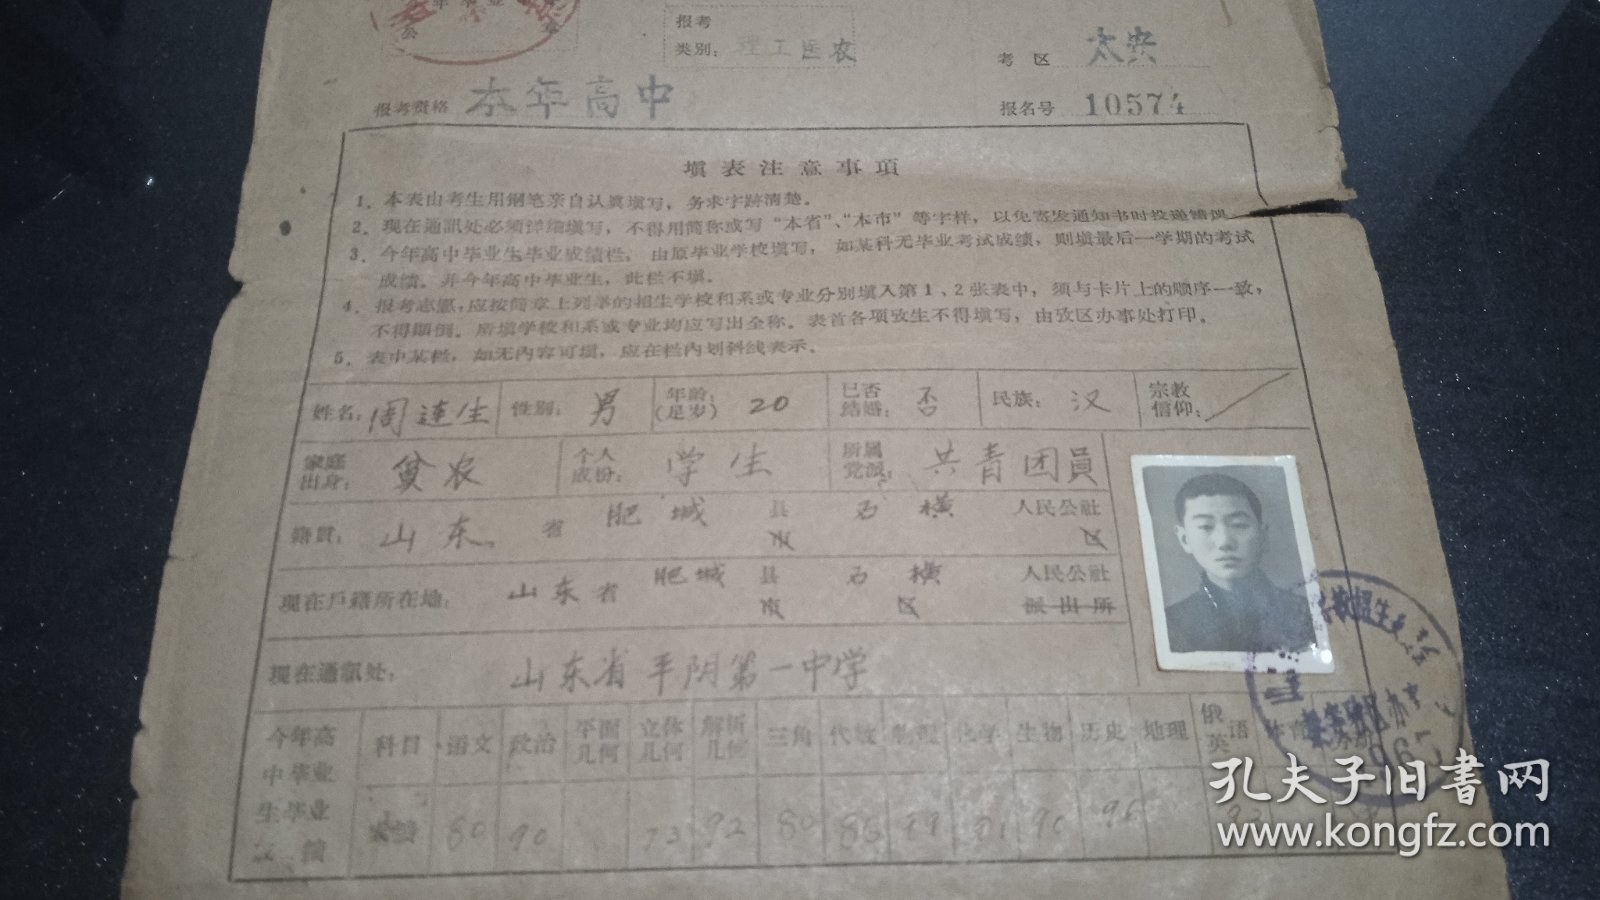 报考
类别：理工医农
考区 太安
报考资格 本年高中
报名号 10574
填表注意事項
1．本表由考生用鋼笔亲自认眞填写，务求字跡清楚。
2．現在通訊处必須详細填写，不得用简称或写“本省”、“本市”等字样，以免寄发通知书时投递錯誤。
3．今年高中毕业生毕业成績栏，由原毕业学校填写，如某科无毕业考试成績，則填最后一学期的考试
成績。非今年高中毕业生，此栏不填。
4．报考志愿，应按简章上列举的招生学校和系或专业分别填入第1、2张表中，須与卡片上的顺序一致，
不得顚倒。所填学校和系或专业均应写出全称。表首各項攷生不得填写，由攷区办事处打印。
5．表中某栏，如无內容可填，应在栏內划斜线表示。
姓名：周連生 性别：男 年龄：（足岁）20 已否結婚：否 民族：汉 宗教信仰：
家庭出身：貧农 个人成份：学生 所屬党派：共青团員
籍貫：山东省 肥城 县 市 石横 人民公社 区
現在戶籍所在地：山东省 肥城 县 市 石横 区 人民公社 派出所
現在通訊处：山东省平阴第一中学
今年高中毕业生毕业成績
科目 语文 政治 平面几何 立体几何 解析几何 三角 代数 物理 化学 生物 历史 地理 俄英语 体育
成績 80 90 73 92 80 86 99 91 90 96 93
孔夫子旧书网
www.kongfz.com